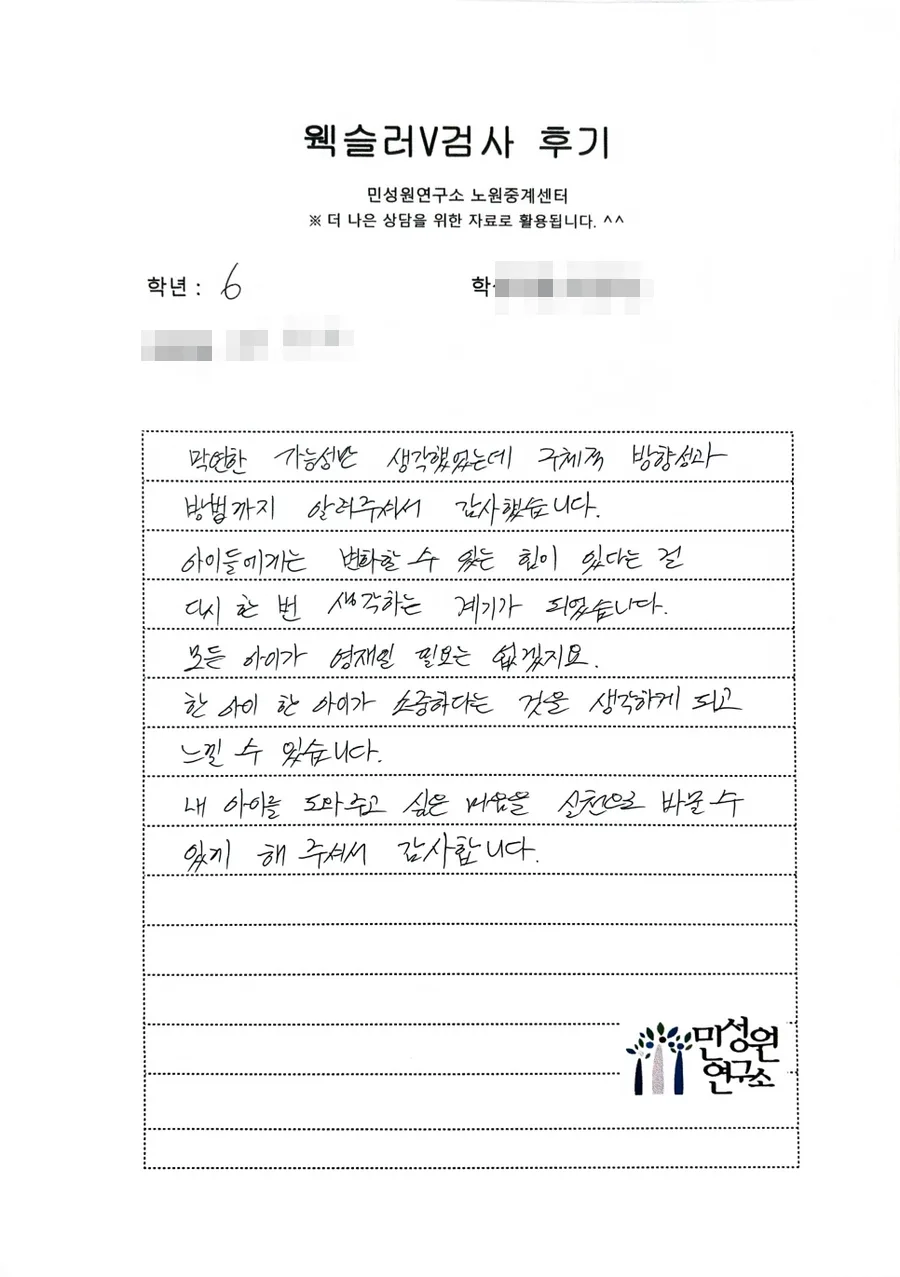 웩슬러V검사 후기
민성원연구소 노원중계센터
※ 더 나은 상담을 위한 자료로 활용됩니다. ^^
학년 : 6 학
막연한 가능성만 생각했었는데 구체적 방향성과
방법까지 알려주셔서 감사했습니다.
아이들에게는 변화할 수 있는 힘이 있다는 걸
다시 한 번 생각하는 계기가 되었습니다.
모든 아이가 영재일 필요는 없겠지요.
한 아이 한 아이가 소중하다는 것을 생각하게 되고
느낄 수 있습니다.
내 아이를 도와주고 싶은 마음을 실천으로 바꿀 수
있게 해 주셔서 감사합니다.
민성원
연구소